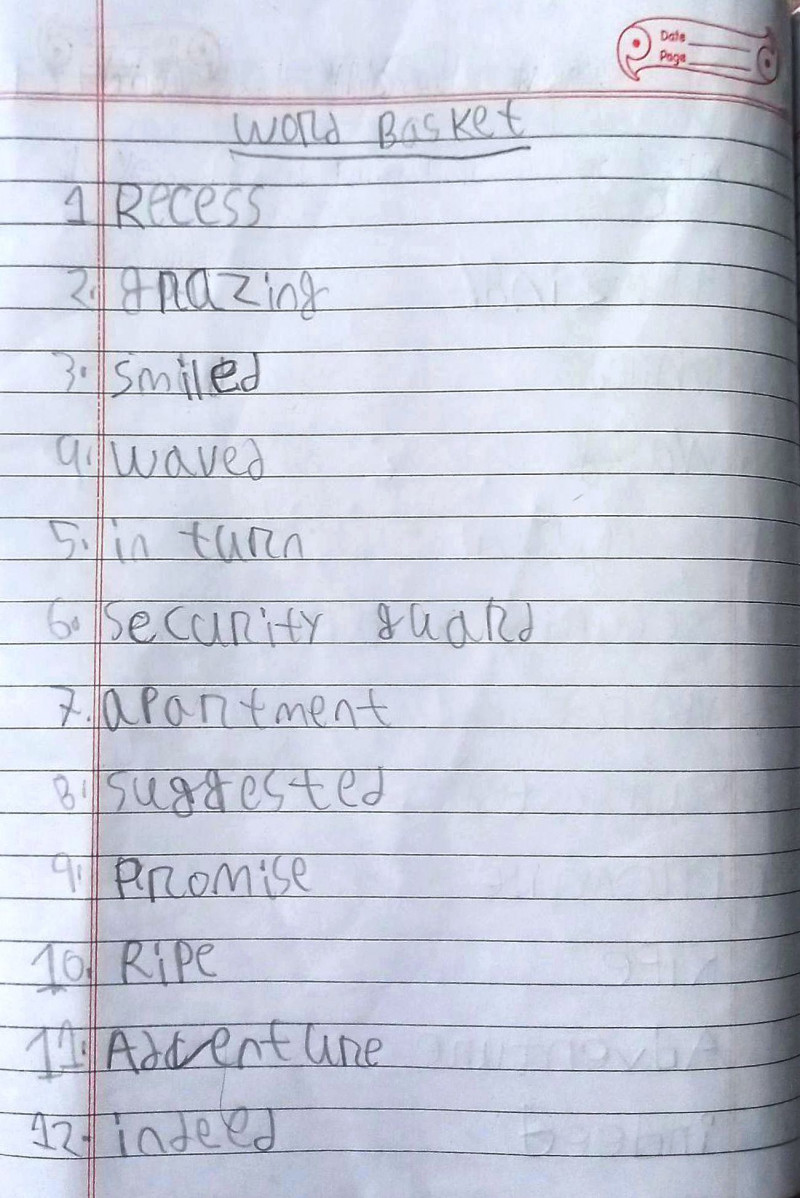 Date
Page
Word Basket
1 Recess
2. grazing
3. smiled
4. waved
5. in turn
6. security guard
7. apartment
8. suggested
9. promise
10. Ripe
11. Adventure
12. indeed